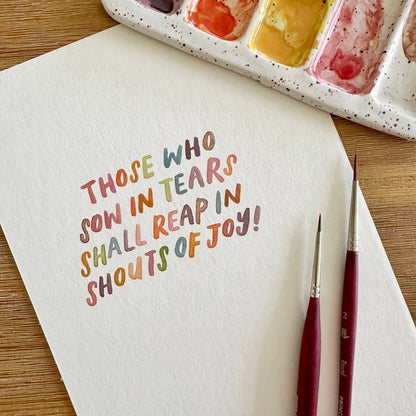 THOSE WHO
SOW IN TEARS
SHALL REAP IN
SHOUTS OF JOY!
2